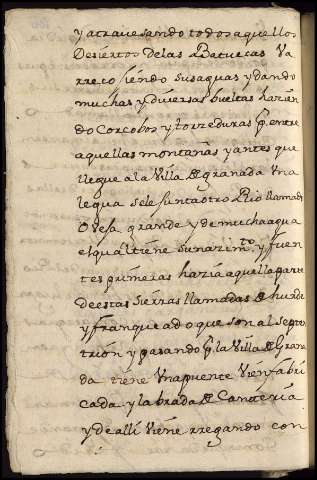 y atravesando todos aquellos
Desiertos de las Batuecas va
rrecojiendo sus aguas y dando
muchas y diversas bueltas hazien
do corcobos y torzeduras pr entre
aquellas montañas y antes que
llegue a la Villa de granada una
legua sele junta otro Rio llamado
grande y de mucha agua
el qual tiene su nazimto y fuen
tes primeras hazia aquella parte
de estas sierras llamadas de hurde
y franqueado que son al septen
trion y pasando pr la Villa de Grana
da tiene una puente vien fabri
cada y labrada de Canteria
y de alli viene rregando con